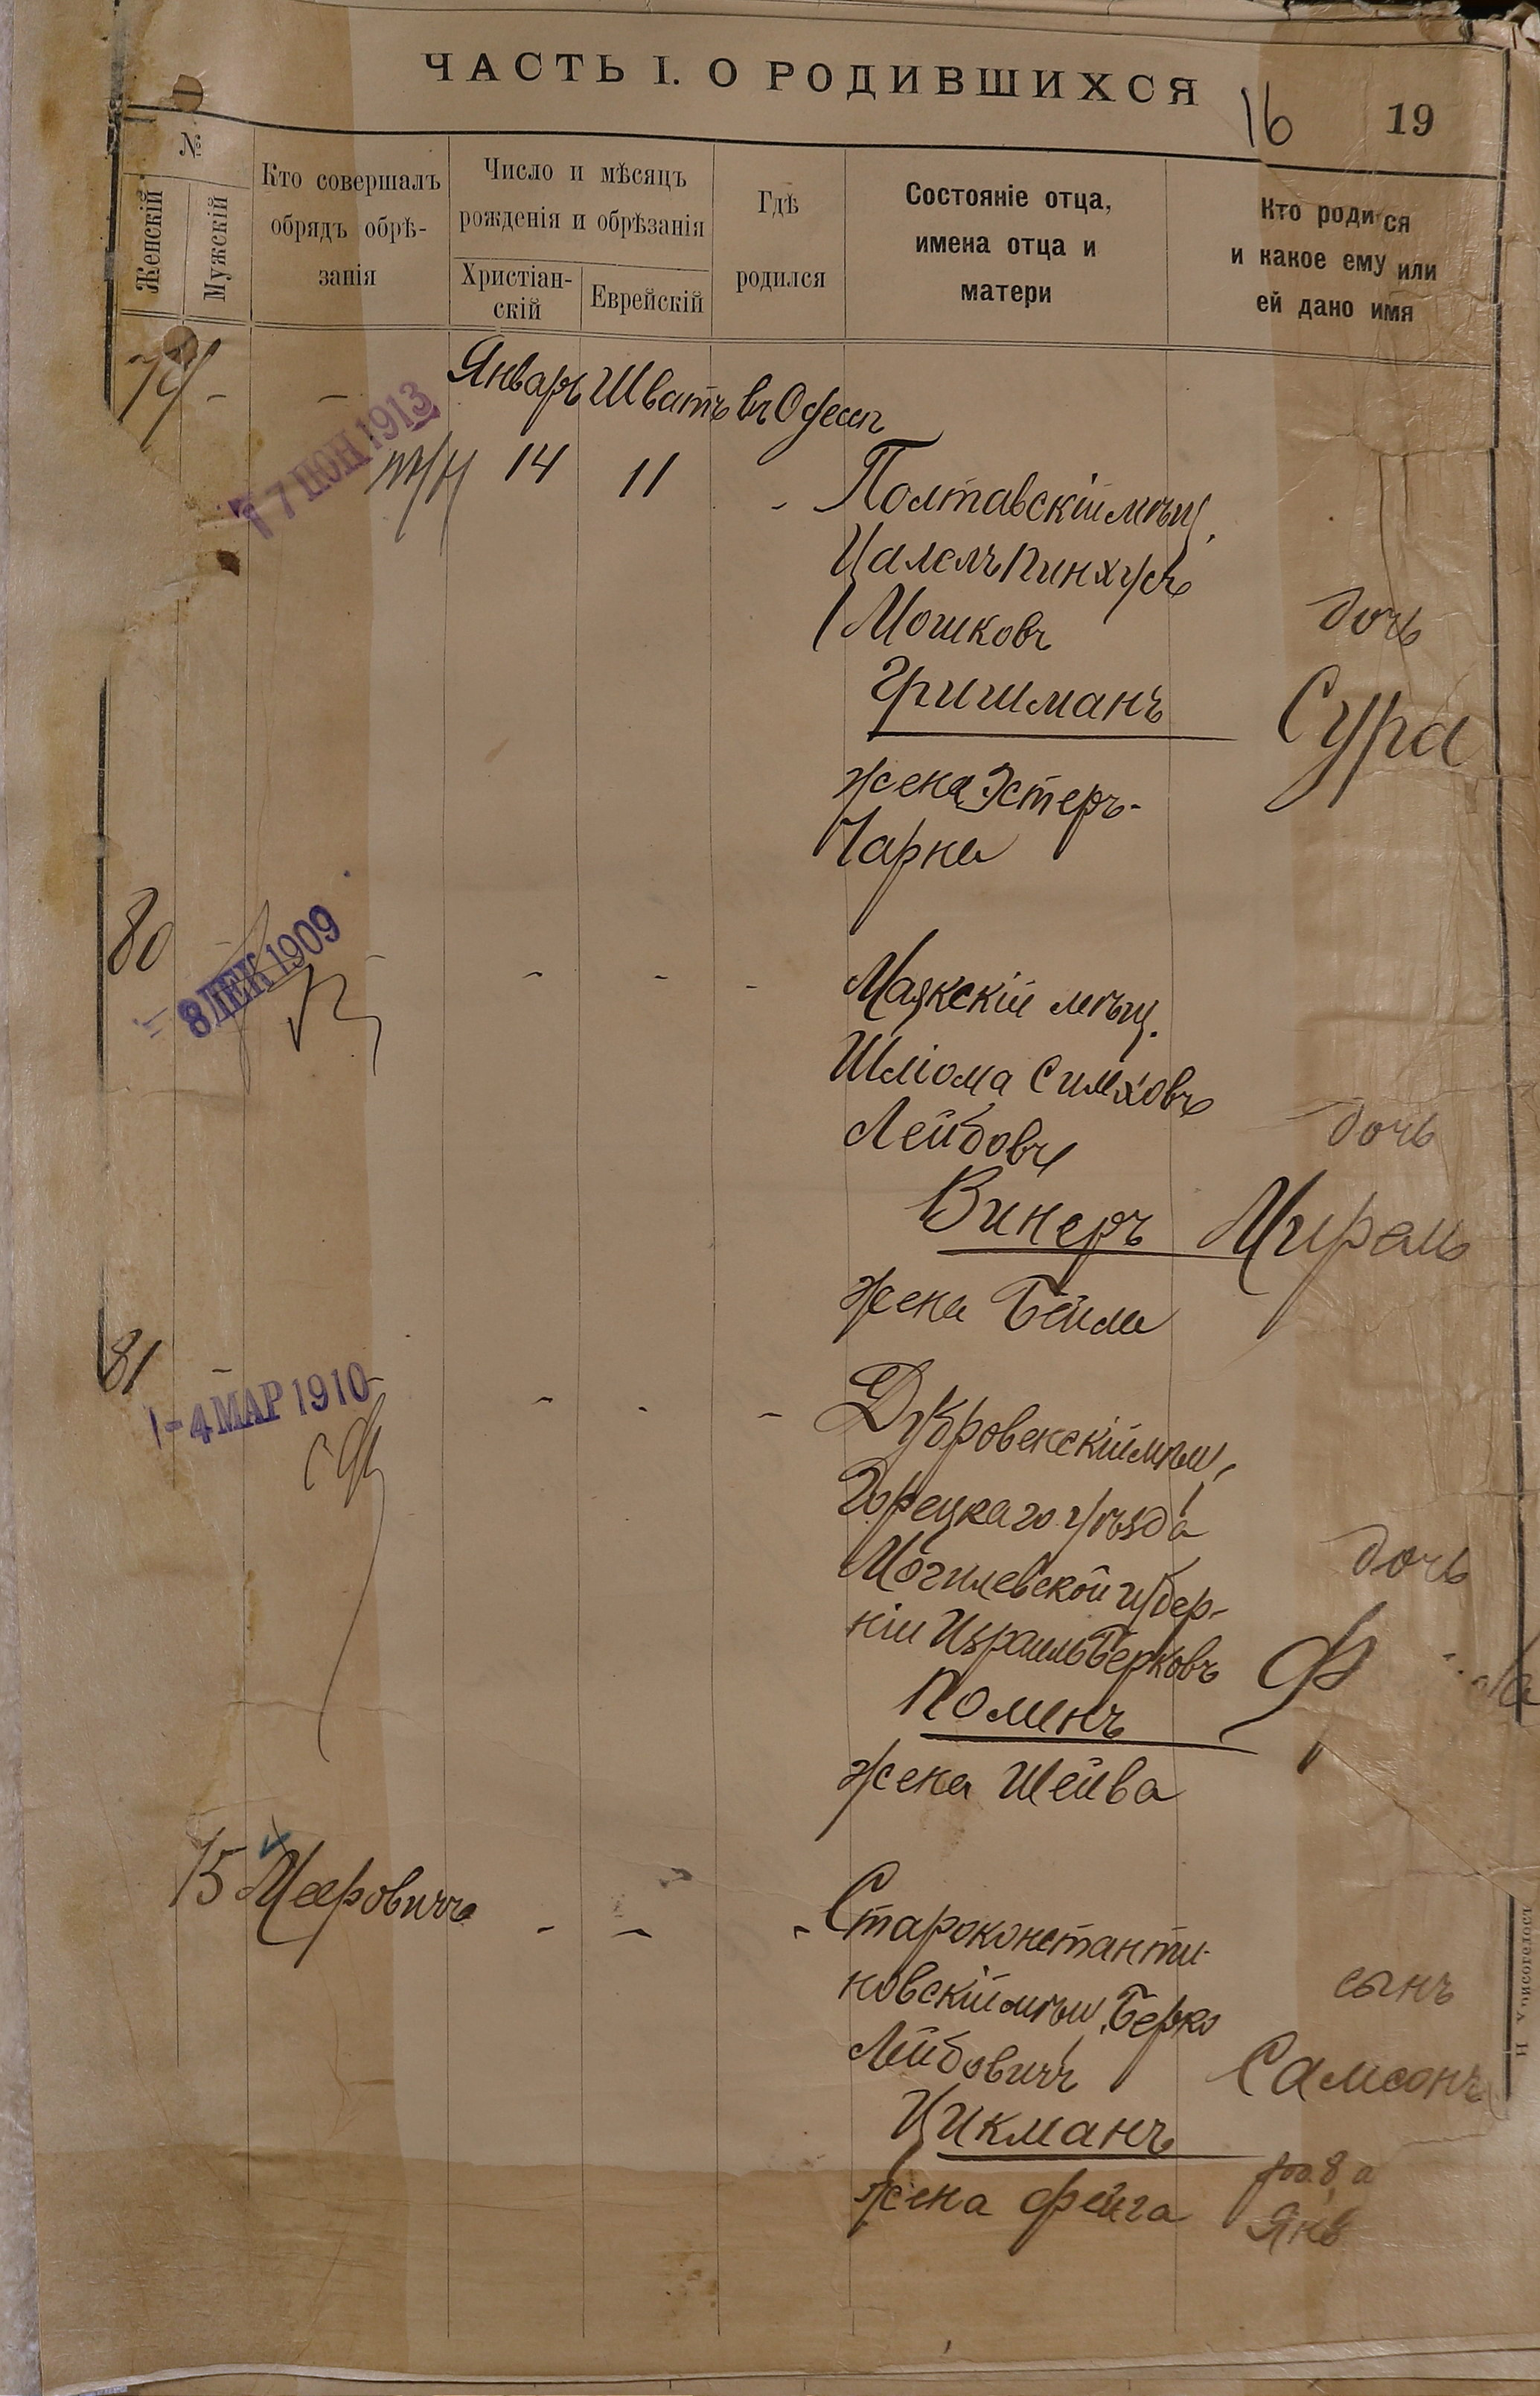 ЧАСТЬ I. О РОДИВШИХСЯ
16 19
№
Женскій
Мужскій
Кто совершалъ
обрядъ обрѣ-
занія
Число и мѣсяцъ
рожденія и обрѣзанія
Христіан-
скій
Еврейскій
Гдѣ
родился
Состояніе отца,
имена отца и
матери
Кто родися
и какое ему или
ей дано имя
- - Январь Шватъ въ Одессѣ
17 ІЮН 1913
14 11 - Полтавскій мѣщ.
Цалелъ Пинхусъ
Мошковъ
Гришманъ
жена Эстеръ-
Чарна
дочь
Сура
80 - -
8 ДЕК 1909
- - - Маякскій мѣщ.
Шліома Симховъ
Лейбовъ
Винеръ
жена Бейла
дочь
Мирель
81 - -
- 4 МАР 1910
- - - Дубровенскій мѣщ.
Горецкаго уѣзда
Могилевской губер-
ніи Израиль Берковъ
жена Шейва
дочь
75 Мееровичъ - - - Староконстанти-
новскій мѣщ. Берко
Лейбовичъ
Цикманъ
жена Фейга
сынъ
Самсонъ
Янв